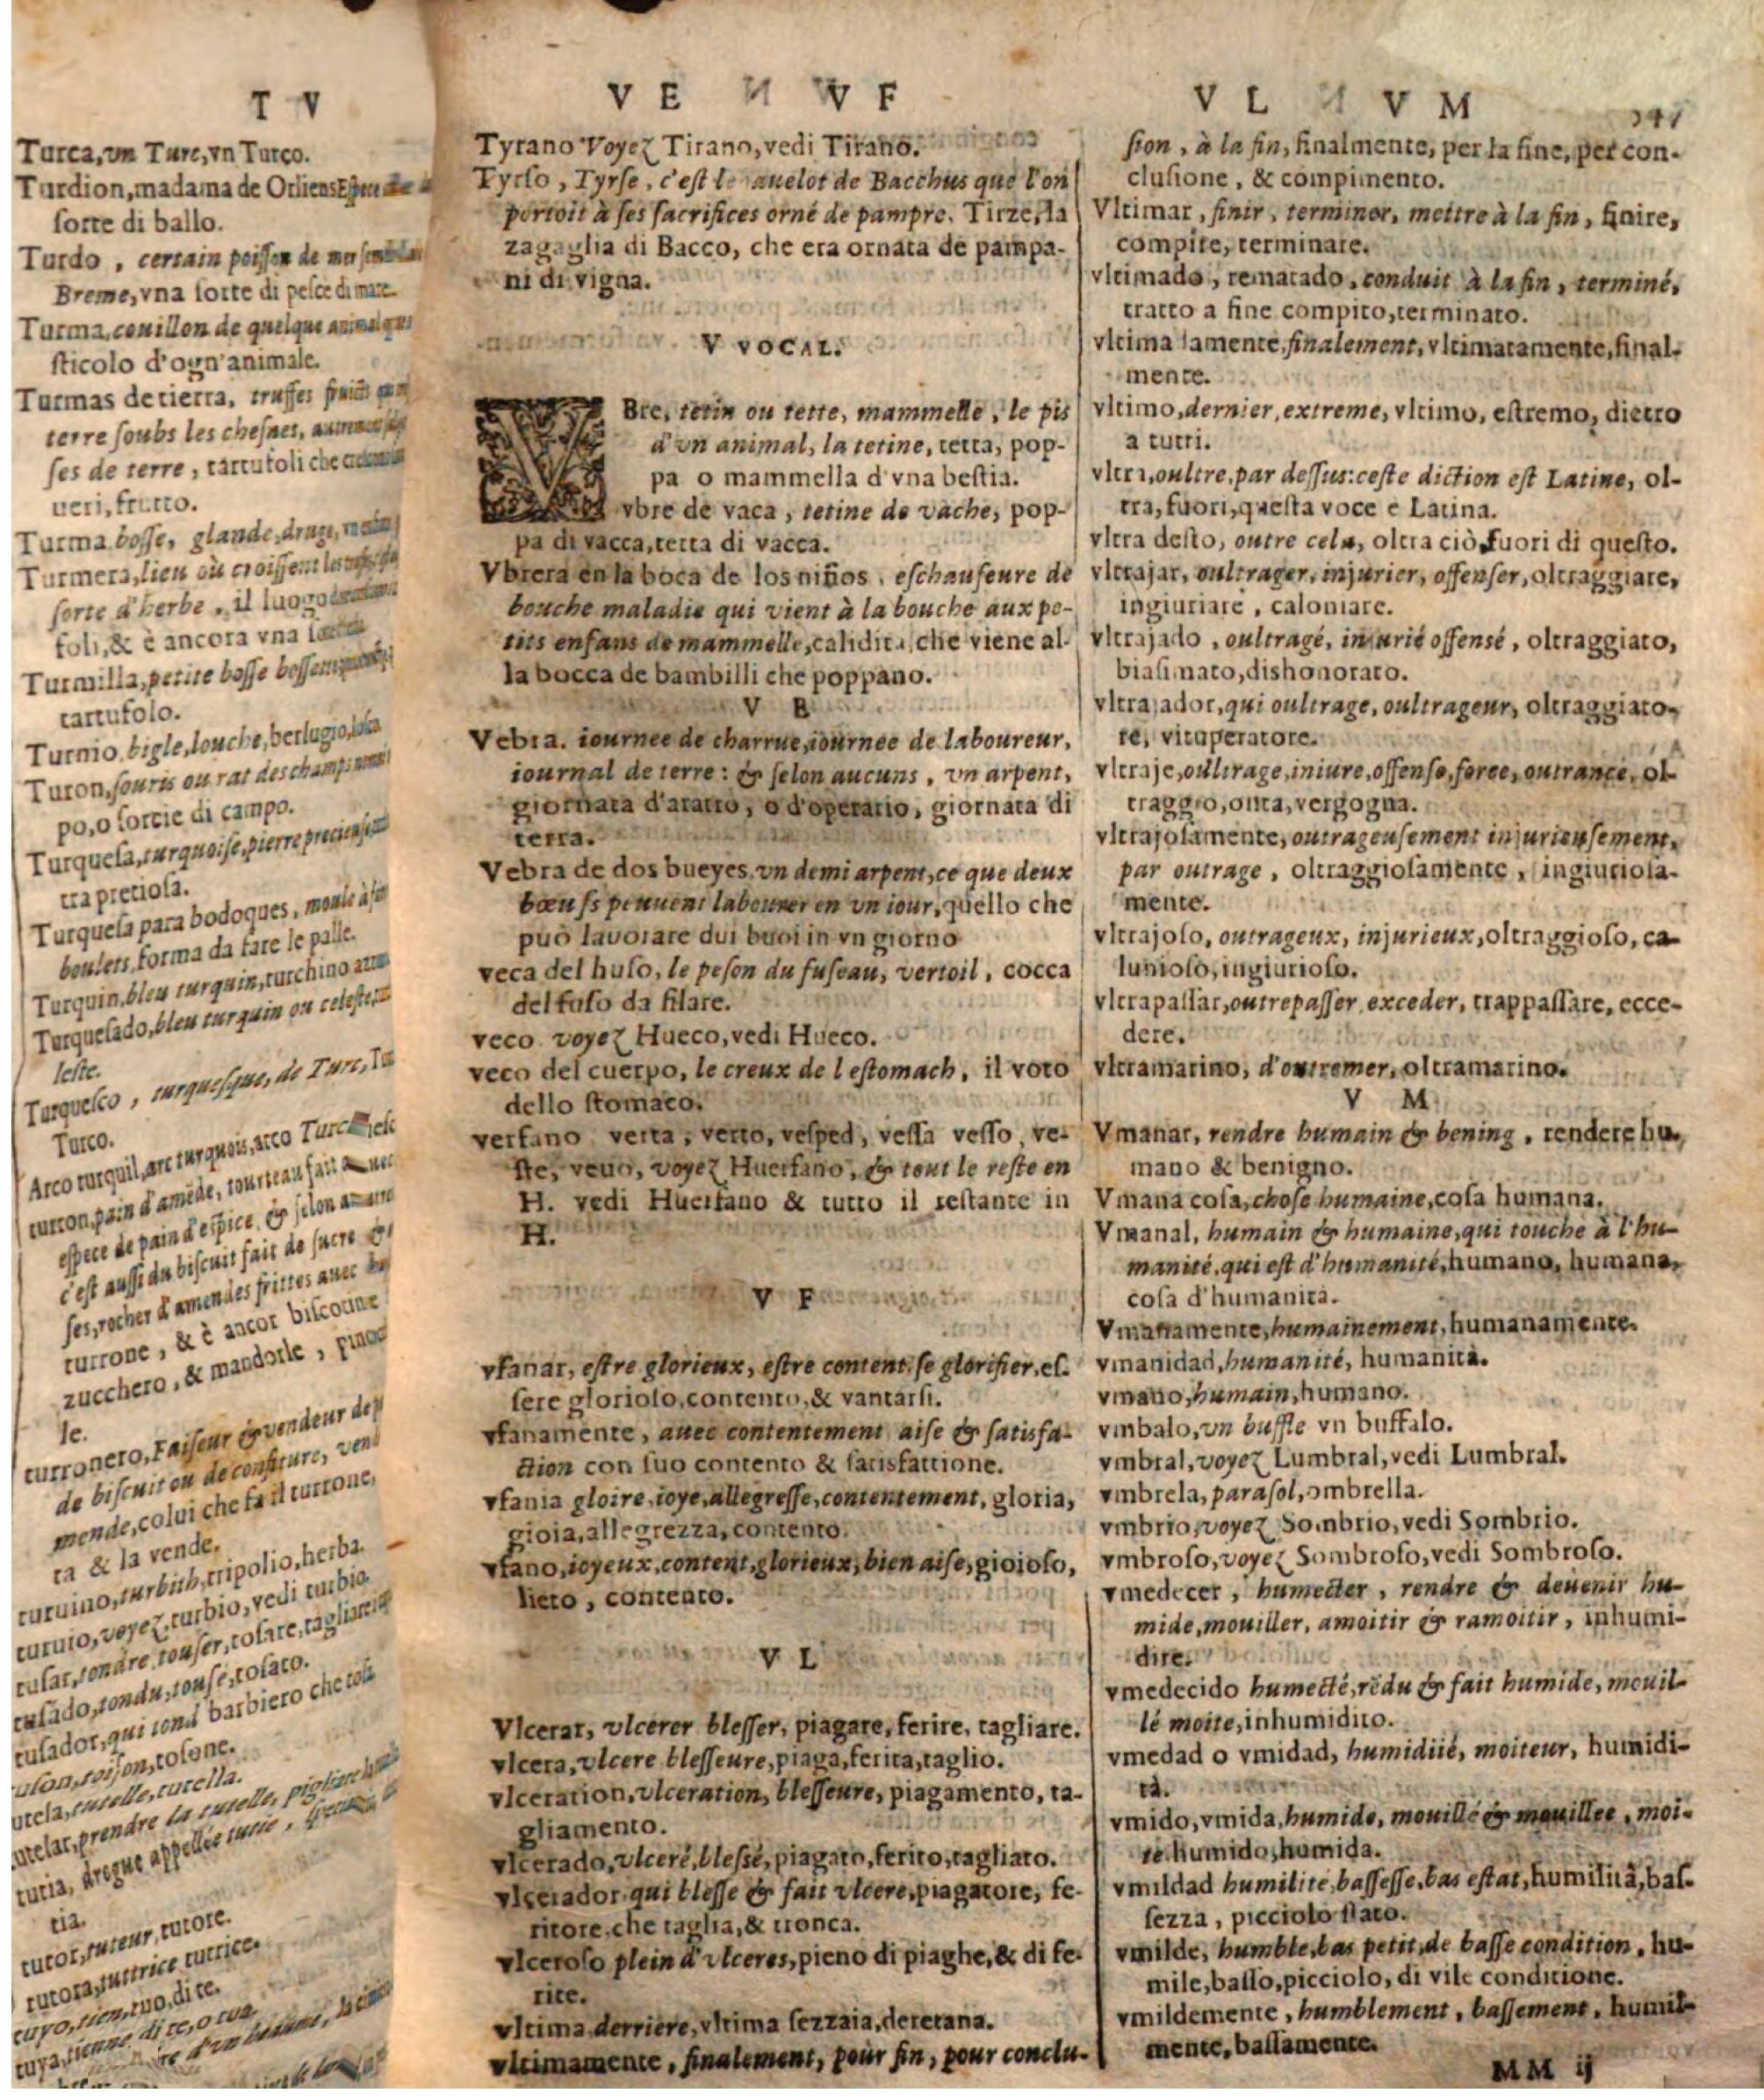 T V
Turca, vn Turc, vn Turco.
Turdion, madama de Orliens
sorte di ballo.
Turdo , certain poisson de mer
Breme, vna sorte di pesce di mare.
Turma, couillon de quelque animal
sticolo d'ogn'animale.
Turmas de tierra, truffes
terre soubs les chesnes,
ses de terre, tartufoli che
ueri, frutto.
Turma bosse, glande,
Turmera, lieu où croissent
sorte d'herbe , il luogo
foli, & è ancora vna
Turmilla, petite bosse
tartufolo.
Turnio, bigle, louche, berlugio,
Turon, souris ou rat des champs
po, o sorcie di campo.
Turquesa, turquoise, pierre precieuse,
tra pretiosa.
Turquesa para bodoques, moule à
boulets, forma da fare le palle.
Turquin, bleu turquin, turchino
Turquesado, bleu turquin ou celeste,
leste.
Turquesco , turquesque, de Turc,
Turco.
Arco turquil, arc turquois, arco
turron, pain d'amēde, tourteau fait
espece de pain d'espice & selon
c'est aussi du biscuit fait de sucre
ses, rocher d'amendes frittes auec
turrone, & è ancor biscotine
zucchero, & mandorle ,
le.
turronero, Faiseur & vendeur de
de biscuit ou de confiture,
mende, colui che fa il turrone,
ta & la vende.
turuino, turbith, tripolio, herba.
turuio, voyez turbio, vedi turbio
tusar, tondre touser, tosare,
tusado, tondu, tousé, tosato.
tusador, qui tond barbiero che
toison, tosone.
tutelle, tutella.
prendre la tutelle,
tutia, drogue appellée tutie ,
tia.
tutor, tuteur, tutore.
tutora, tuttrice tutrice.
tuyo, tien, tuo, di te.
tuya, tienne di te, o tua.
V E V F
Tyrano Voyez Tirano, vedi Tirano.
Tyrso , Tyrse, c'est le auelot de Bacchus que l'on
portoit à ses sacrifices orné de pampre. Tirze, la
zagaglia di Bacco, che era ornata de pampa-
ni di vigna.
V VOCAL.
VBre, tetin ou tette, mammelle , le pis
d'vn animal, la tetine, tetta, pop-
pa o mammella d'vna bestia.
vbre de vaca , tetine de vache, pop-
pa di vacca, tetta di vacca.
Vbrera en la boca de los niños , eschaufeure de
bouche maladie qui vient à la bouche aux pe-
tits enfans de mammelle, calidita che viene al-
la bocca de bambilli che poppano.
V E
Vebra. iournee de charrue, iournee de laboureur,
iournal de terre: & selon aucuns , vn arpent,
giornata d'aratro, o d'operario, giornata di
terra.
Vebra de dos bueyes, vn demi arpent, ce que deux
bœufs peuuent labourer en vn iour, quello che
può lauorare dui buoi in vn giorno
veca del huso, le peson du fuseau, vertoil, cocca
del fuso da filare.
veco voyez Hueco, vedi Hueco.
veco del cuerpo, le creux de l estomach, il voto
dello stomaco.
verfano verta , verto, vesped, vessa vesso , ve-
ste, veuo, voyez Huerfano, & tout le reste en
H. vedi Huerfano & tutto il restante in
H.
V F
vfanar, estre glorieux, estre content, se glorifier, es-
sere glorioso, contento, & vantarsi.
vfanamente , auec contentement aise & satisfa-
ction con suo contento & satisfattione.
vfania gloire, ioye, allegresse, contentement, gloria,
gioia, allegrezza, contento.
vfano, ioyeux, content, glorieux, bien aise, gioioso,
lieto , contento.
V L
Vlcerar, vlcerer blesser, piagare, ferire, tagliare.
vlcera, vlcere blesseure, piaga, ferita, taglio.
vlceration, vlceration, blesseure, piagamento, ta-
gliamento.
vlcerado, vlceré, blessé, piagato, ferito, tagliato.
vlcerador qui blesse & fait vlcere, piagatore, fe-
ritore, che taglia, & tronca.
vlceroso plein d'vlceres, pieno di piaghe, & di fe-
rite.
vltima derriere, vltima sezzaia, deretana.
vltimamente , finalement, pour fin, pour conclu-
V L V M
sion , à la fin, finalmente, per la fine, per con-
clusione , & compimento.
Vltimar, finir , terminer, mettre à la fin, finire,
compire, terminare.
vltimado , rematado , conduit à la fin , terminé,
tratto a fine compito, terminato.
vltima lamente, finalement, vltimatamente, final-
mente.
vltimo, dernier, extreme, vltimo, estremo, dietro
a tutti.
vltra, oultre, par dessus: ceste diction est Latine, ol-
tra, fuori, questa voce e Latina.
vltra desto, outre cela, oltra ciò, fuori di questo.
vltrajar, oultrager, injurier, offenser, oltraggiare,
ingiuriare , caloniare.
vltrajado , oultragé, iniurié offensé, oltraggiato,
biasimato, dishonorato.
vltrajador, qui oultrage, oultrageur, oltraggiato-
re, vituperatore.
vltraje, oultrage, iniure, offense, force, outrance, ol-
traggio, onta, vergogna.
vltrajosamente, outrageusement injurieusement,
par outrage , oltraggiosamente , ingiuriosa-
mente.
vltrajoso, outrageux, injurieux, oltraggioso, ca-
lunioso, ingiurioso.
vltrapassar, outrepasser, exceder, trappassare, ecce-
dere.
vltramarino, d'outremer, oltramarino.
V M
Vmanar, rendre humain & bening , rendere hu-
mano & benigno.
Vmana cosa, chose humaine, cosa humana.
Vmanal, humain & humaine, qui touche à l'hu-
manité, qui est d'humanité, humano, humana,
cosa d'humanità.
Vmanamente, humainement, humanamente.
vmanidad, humanité, humanità.
vmano, humain, humano.
vmbalo, vn buffle vn buffalo.
vmbral, voyez Lumbral, vedi Lumbral.
vmbrela, parasol, ombrella.
vmbrio, voyez Sombrio, vedi Sombrio.
vmbroso, voyez Sombroso, vedi Sombroso.
vmedecer , humecter , rendre & deuenir hu-
mide, mouiller, amoitir & ramoitir , inhumi-
dire.
vmedecido humecté, rēdu & fait humide, mouil-
lé moite, inhumidito.
vmedad o vmidad, humidité, moiteur, humidi-
tà.
vmido, vmida, humide, mouillé & mouillee , moi-
te. humido, humida.
vmildad humilité, bassesse, bas estat, humilità, bas-
sezza , picciolo stato.
vmilde, humble, bas petit, de basse condition , hu-
mile, basso, picciolo, di vile conditione.
vmildemente , humblement , bassement , humil-
mente, bassamente.
MM ij